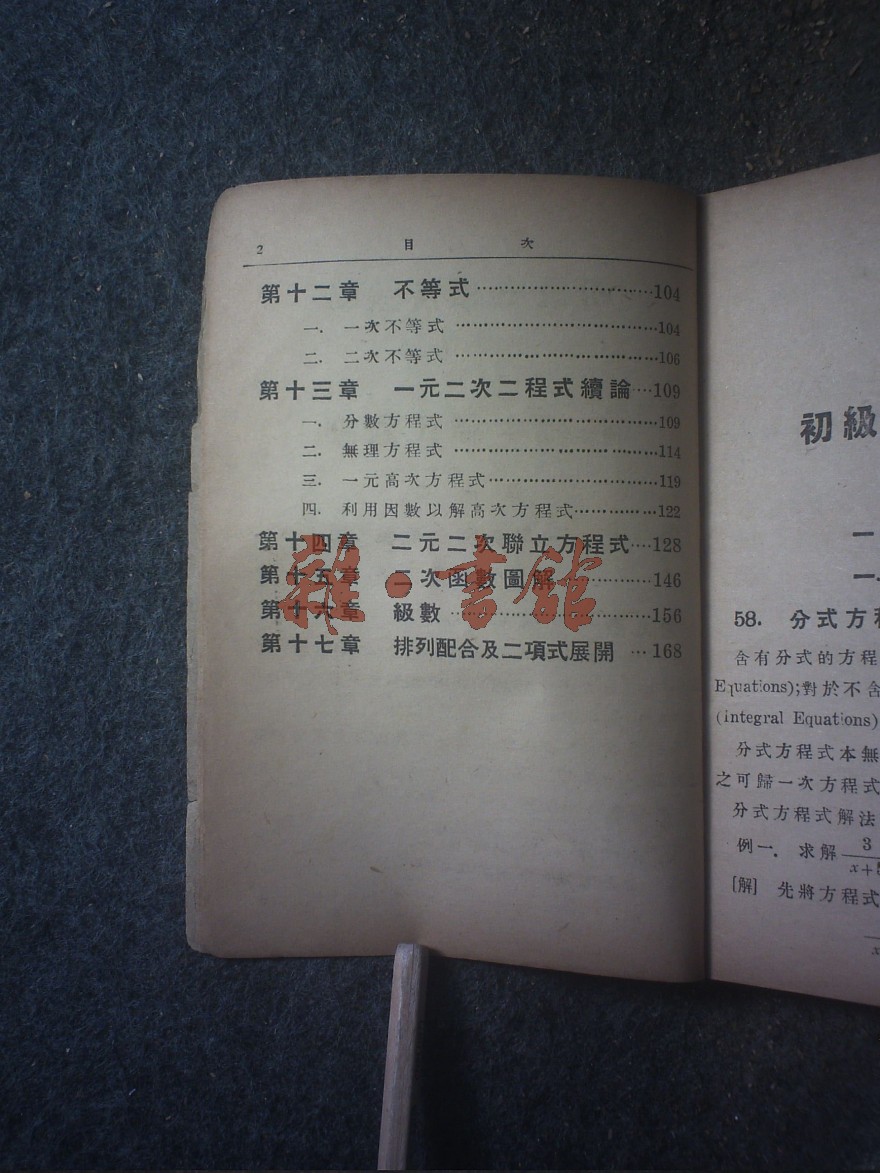 2 目 次
第十二章 不等式……………………………104
一. 一次不等式………………………………104
二. 二次不等式………………………………106
第十三章 一元二次二程式續論…109
一. 分數方程式………………………………109
二. 無理方程式………………………………114
三. 一元高次方程式…………………………119
四. 利用因數以解高次方程式……………122
第十四章 二元二次聯立方程式…128
第十五章 二次函數圖解…………146
第十六章 級數………………………………156
第十七章 排列配合及二項式展開…168
雜·書館
初級
一
一.
58. 分式方程
含有分式的方程
Equations);對於不含
(integral Equations)
分式方程式本無
之可歸一次方程式
分式方程式解法
例一. 求解 3
x+
[解] 先將方程式